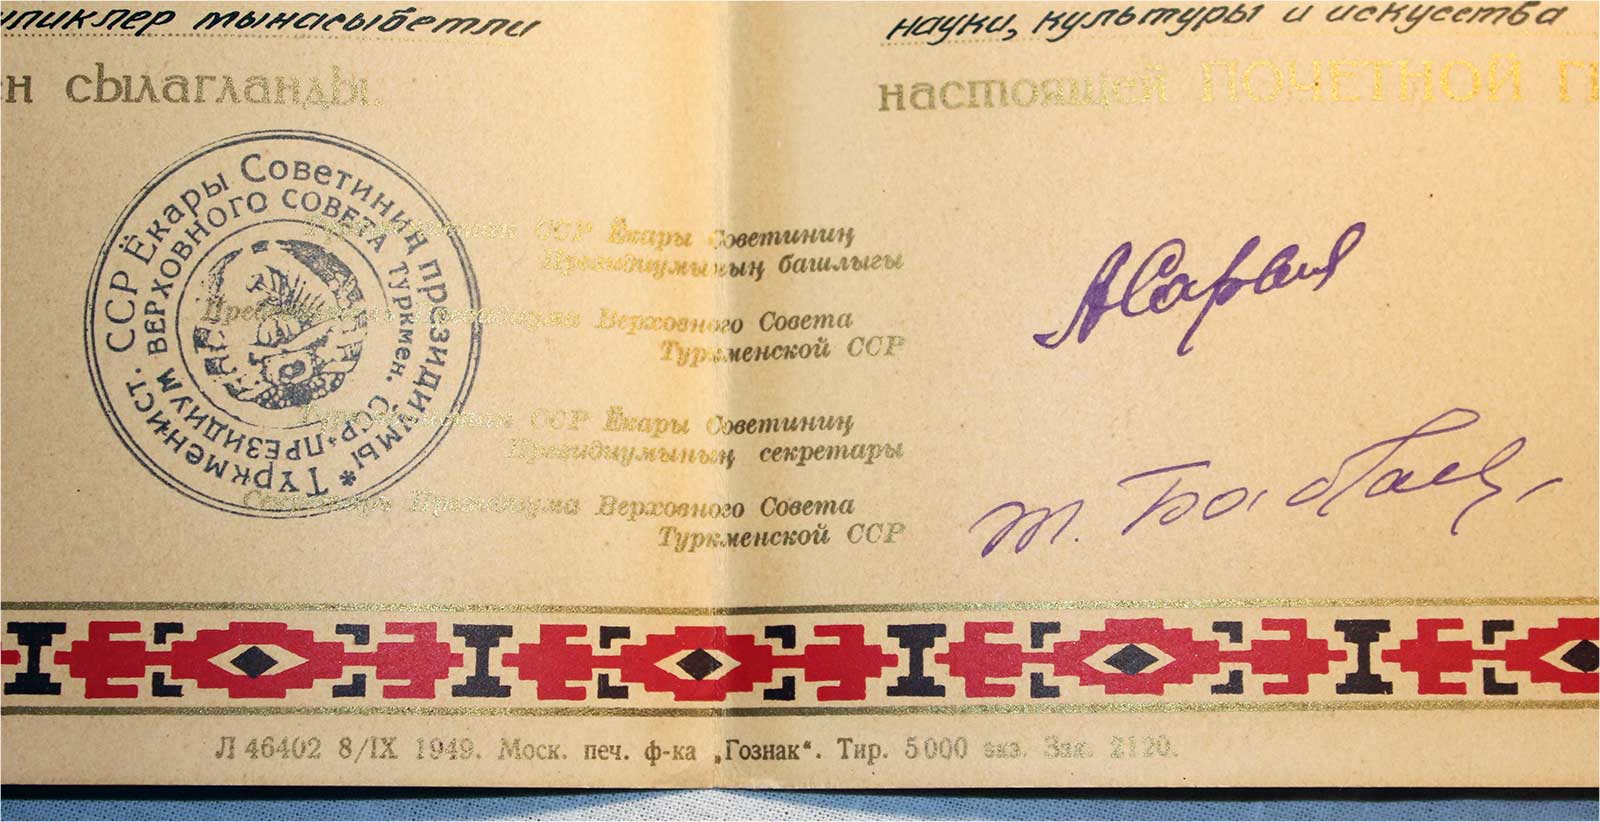 тынасыбетли
науки, культуры и искусства
сылагланды.
настоящей ПОЧЕТНОЙ
Туркменистан ССР Ёкары Советиниң
Президиумының башлыгы
Председатель Президиума Верховного Совета
Туркменской ССР
Туркменистан ССР Ёкары Советиниң
Президиумының секретары
Секретарь Президиума Верховного Совета
Туркменской ССР
ТҮРКМЕНИСТ. ССР Ёкары Советиниң президиумы *
ПРЕЗИДИУМ ВЕРХОВНОГО СОВЕТА ТУРКМЕН. ССР
А Сарыев
Т. Бабаев
Л 46402 8/IX 1949. Моск. печ. ф-ка „Гознак“. Тир. 5000 экз. Зак. 2120.